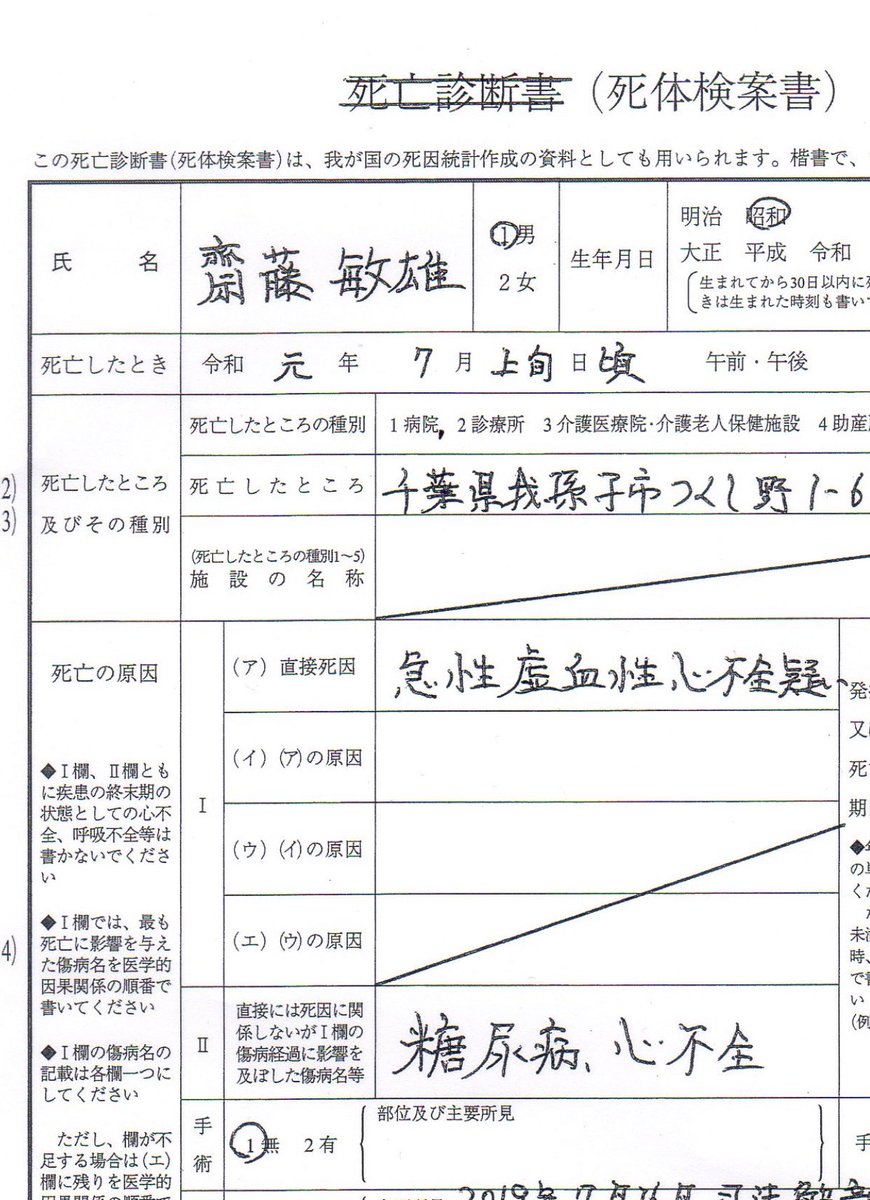 死亡診断書（死体検案書）
この死亡診断書（死体検案書）は、我が国の死因統計作成の資料としても用いられます。楷書で、
氏　名
齋藤 敏雄
1 男
2 女
生年月日
明治　昭和
大正　平成　令和
生まれてから30日以内に死
きは生まれた時刻も書いて
死亡したとき
令和 元 年 7 月 上旬 日 頃 午前・午後
2)
3)
死亡したところ
及びその種別
死亡したところの種別
1 病院, 2 診療所 3 介護医療院・介護老人保健施設 4 助産所
死亡したところ
千葉県我孫子市つくし野1-6
（死亡したところの種別1～5）
施設の名称
死亡の原因
◆Ⅰ欄、Ⅱ欄とも
に疾患の終末期の
状態としての心不
全、呼吸不全等は
書かないでくださ
い
4)
◆Ⅰ欄では、最も
死亡に影響を与え
た傷病名を医学的
因果関係の順番で
書いてください
◆Ⅰ欄の傷病名の
記載は各欄一つに
してください
ただし、欄が不
足する場合は（エ）
欄に残りを医学的
因果関係の順番で
Ⅰ
（ア）直接死因
急性虚血性心不全疑い
（イ）（ア）の原因
（ウ）（イ）の原因
（エ）（ウ）の原因
Ⅱ
直接には死因に関
係しないがⅠ欄の
傷病経過に影響を
及ぼした傷病名等
糖尿病、心不全
又は
死
期
手術
1 無 2 有
部位及び主要所見
手